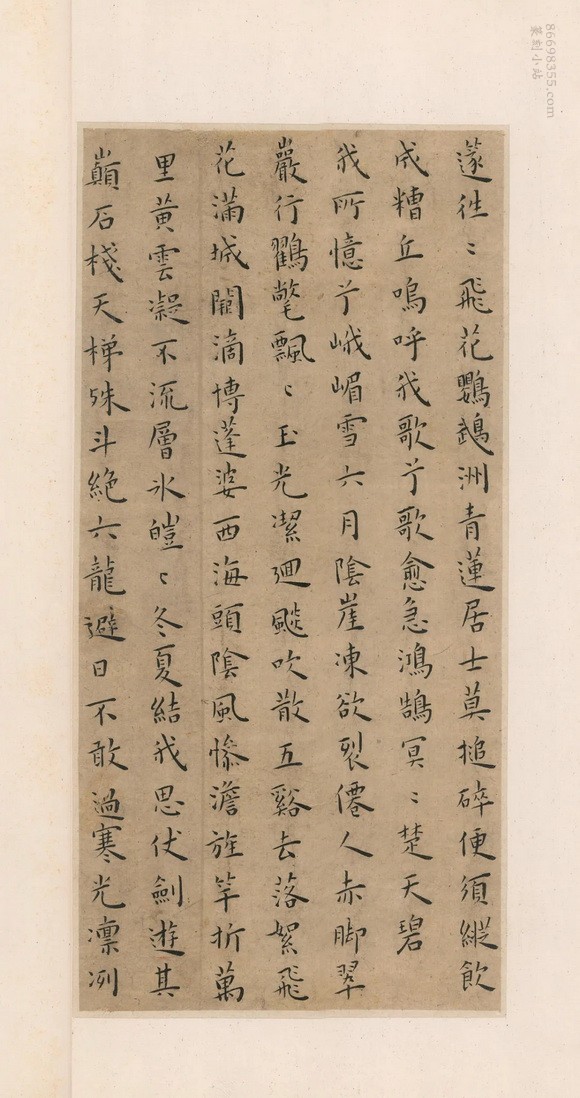 蓫徃〻飛花鸚鵡洲青蓮居士莫搥碎便須縱飲
成糟丘嗚呼我歌兮歌愈急鴻鵠冥〻楚天碧
我所憶兮峨嵋雪六月陰崖凍欲裂僊人赤脚翠
巖行鸛氅飄〻玉光潔廻飈吹散五谿去落絮飛
花滿城闉滴博蓬婆西海頭陰風慘澹旌竿折萬
里黃雲凝不流層氷皚〻冬夏結我思伏劍遊其
巔石棧天梯殊斗絶六龍避日不敢過寒光凛冽
86698355.com
篆刻小站